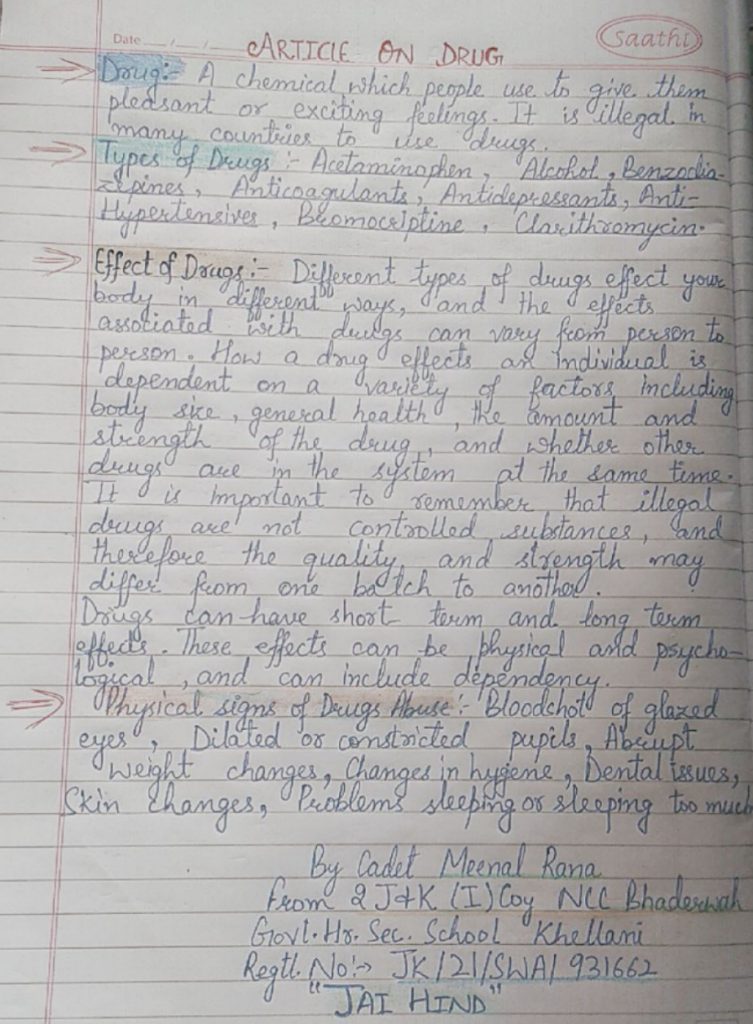 Date __/__/__
Saathi
ARTICLE ON DRUG
Drug:- A chemical which people use to give them
pleasant or exciting feelings. It is illegal in
many countries to use drugs.
Types of Drugs :- Acetaminophen, Alcohol, Benzodia-
zepines, Anticoagulants, Antidepressants, Anti-
Hypertensives, Bromocriptine, Clarithromycin.
Effect of Drugs:- Different types of drugs effect your
body in different ways, and the effects
associated with drugs can vary from person to
person. How a drug effects an individual is
dependent on a variety of factors including
body size, general health, the amount and
strength of the drug, and whether other
drugs are in the system at the same time.
It is important to remember that illegal
drugs are not controlled substances, and
therefore the quality and strength may
differ from one batch to another.
Drugs can have short term and long term
effects. These effects can be physical and psycho-
logical, and can include dependency.
Physical signs of Drugs Abuse:- Bloodchot of glazed
eyes, Dilated or constricted pupils, Abrupt
weight changes, Changes in hygiene, Dental issues,
Skin changes, Problems sleeping or sleeping too much
By Cadet Meenal Rana
from 2 J&K (I) Coy NCC Bhaderwah
Govt. Hr. Sec. School Khellani
Regtl. No:-> JK/21/SWA/931662
"JAI HIND"